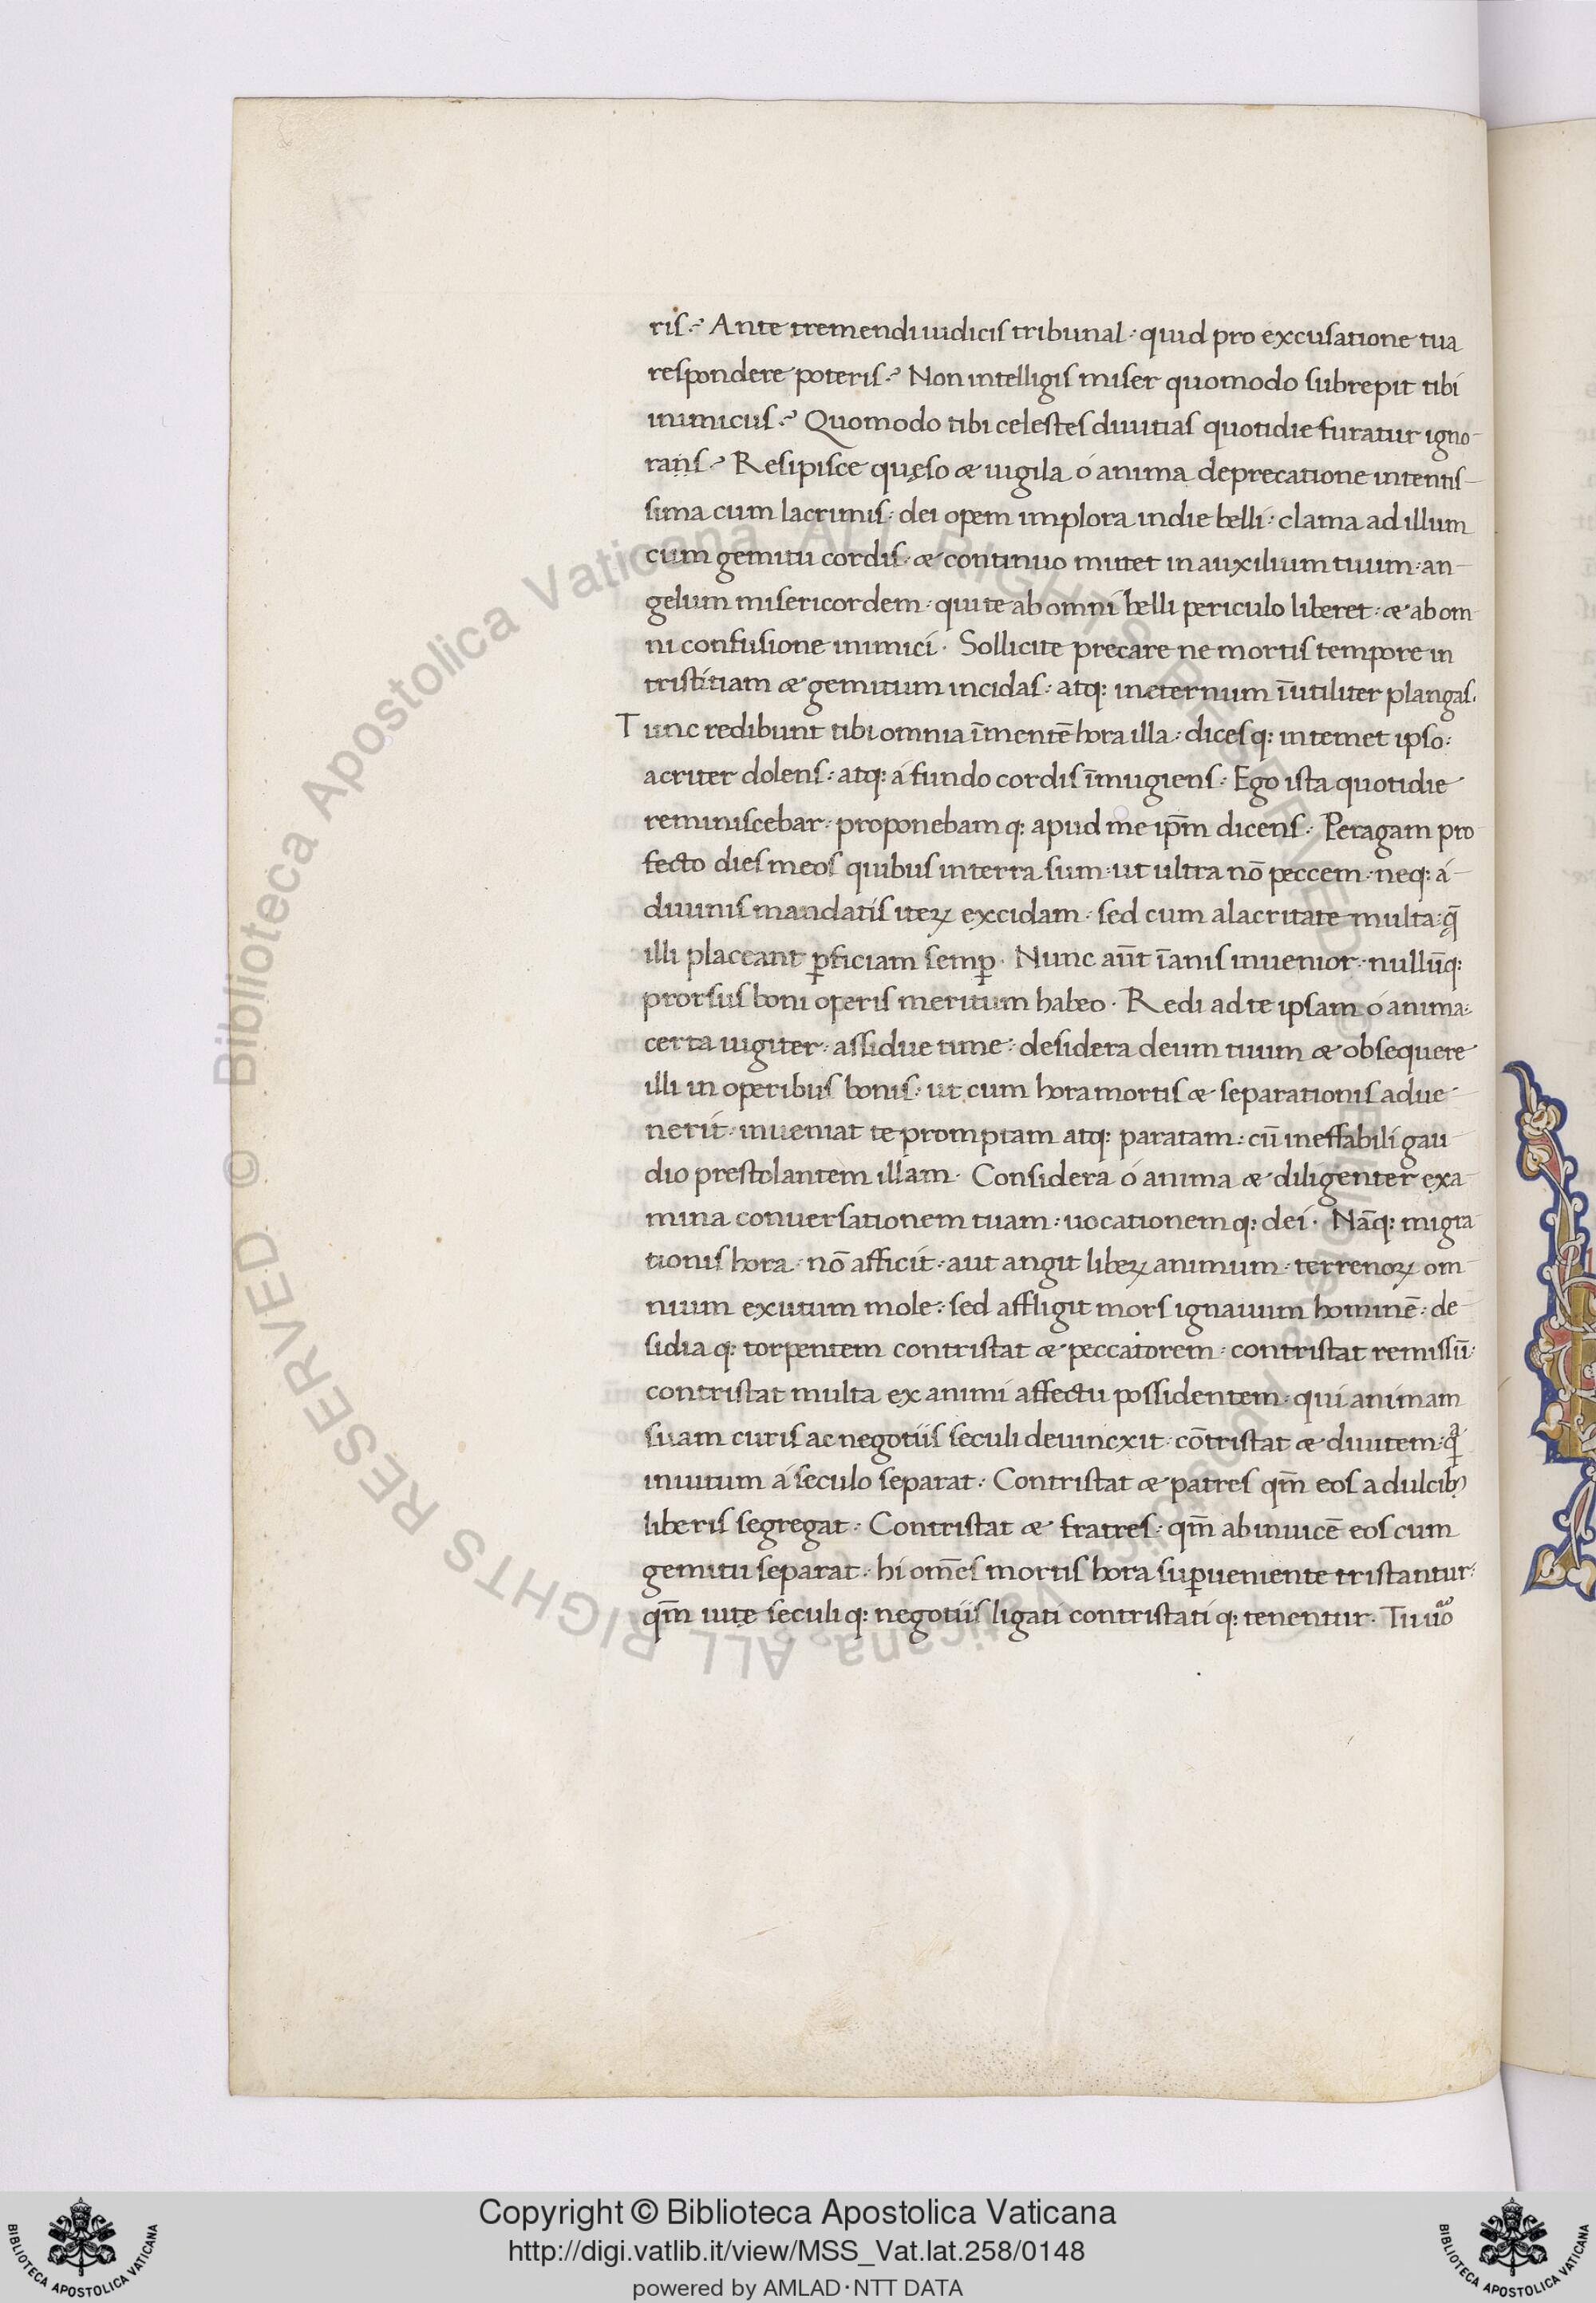 ris? Ante tremendi iudicis tribunal: quid pro excusatione tua
respondere poteris? Non intelligis miser quomodo subrepit tibi
inimicus? Quomodo tibi celestes diuitias quotidie furatur igno-
rans? Resipisce quęso & uigila o anima deprecatione intentis-
sima cum lacrimis: dei opem implora in die belli: clama ad illum
cum gemitu cordis: & continuo mittet in auxilium tuum: an-
gelum misericordem: qui te ab omni belli periculo liberet: & ab om
ni confusione inimici. Sollicite precare ne mortis tempore in
tristitiam & gemitum incidas: atq: in eternum īutiliter plangas.
Tunc redibunt tibi omnia ī mentē hora illa: dicesq: in temet ipso:
acriter dolens: atq: á fundo cordis īmugiens: Ego ista quotidie
reminiscebar: proponebamq: apud me ip̄m dicens: Peragam pro
fecto dies meos quibus in terra sum: ut ultra nō peccem: neq: á
diuinis mandatis iteꝝ excidam: sed cum alacritate multa: q̄
illi placeant ꝑficiam semꝑ. Nunc aūt īanis inuenior: nullūq:
prorsus boni operis meritum habeo. Redi ad te ipsam ó anima:
certa iugiter: assidue time: desidera deum tuum & obsequere
illi in operibus bonis: ut cum hora mortis & separationis adue
nerit: inueniat te promptam atq: paratam: cū ineffabili gau
dio prestolantem illam. Considera ó anima & diligenter exa
mina conuersationem tuam: uocationemq: dei. Nāq: migra
tionis hora: nō afficit: aut angit libeꝝ animum: terrenoꝝ om
nium exutum mole: sed affligit mors ignauum hominē: de
sidiaq: torpentem contristat & peccatorem: contristat remissū:
contristat multa ex animi affectu possidentem: qui animam
suam curis ac negotiis seculi deuincxit: cōtristat & diuitem: qͣ
inuitum á seculo separat: Contristat & patres qm̄ eos a dulcibꝰ
liberis segregat: Contristat & fratres: qm̄ ab inuicē eos cum
gemitu separat: hi om̄es mortis hora suꝑueniente tristantur:
qm̄ uitę seculiq: negotiis ligati contristatiq: tenentur. Tu uͦo
© Biblioteca Apostolica Vaticana ALL RIGHTS RESERVED © Biblioteca Apostolica Vaticana ALL RIGHTS RESERVED
BIBLIOTECA APOSTOLICA VATICANA
Copyright © Biblioteca Apostolica Vaticana
http://digi.vatlib.it/view/MSS_Vat.lat.258/0148
powered by AMLAD·NTT DATA
BIBLIOTECA APOSTOLICA VATICANA